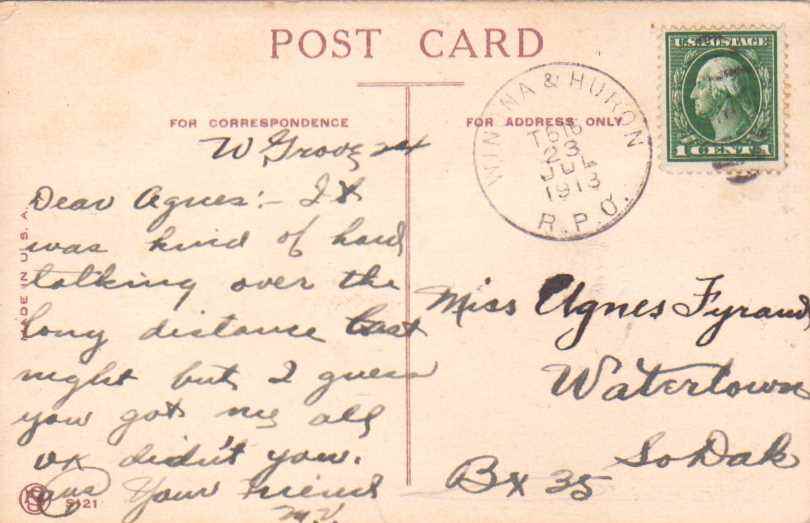 POST CARD
FOR CORRESPONDENCE
FOR ADDRESS ONLY
U.S. POSTAGE
1 CENT 1
WINONA & HURON
T 616
23
JUL
1913
R.P.O.
MADE IN U.S.A.
W Grove 24
Dear Agnes:- It
was kind of hard
talking over the
long distance last
night but I guess
you got me all
ok didn't you.
ans Your Friend
M.V.
Miss Agnes Fyrand
Watertown
So Dak
Bx 35
S121